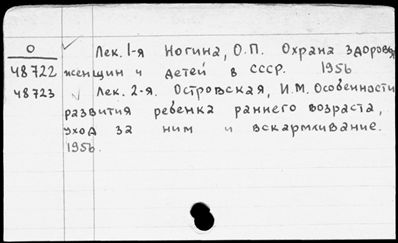 О Лек. 1-я Ногина, О.П. Охрана здоровья
48722 женщин и детей в СССР. 1956
48723 Лек. 2-я. Островская, И.М. Особенности
развития ребенка раннего возраста,
уход за ним и вскармливание.
1956.